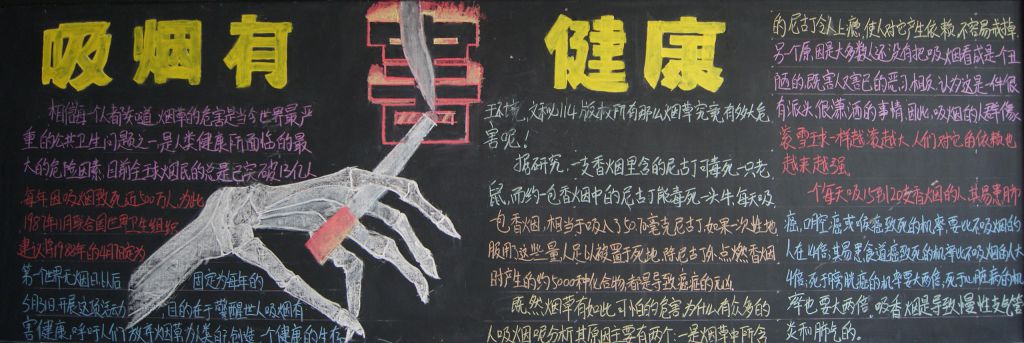 吸烟有害健康
相信每一个人都知道,烟草的危害是当今世界最严
重的公共卫生问题之一,是人类健康所面临的最
大的危险因素。目前全球烟民的总量已突破13亿人
每年因吸烟致死近500万人,为此
1987年11月联合国世界卫生组织
建议将1988年的4月7日定为
第一个世界无烟日,以后 固定为每年的
5月31日,开展这项活动 目的在于警醒世人吸烟有
害健康,呼吁人们放弃烟草,为人类创造一个健康的生存
王环境,文秘114版权所有那么烟草究竟有多大危
害呢!
据研究,一支香烟里含的尼古丁可毒死一只老
鼠,而约一包香烟中的尼古丁能毒死一头牛,每天吸
一包香烟,相当于吸入了50万毫克尼古丁,如果一次性地
服用这些量,人足以被置于死地,除尼古丁外,点燃香烟
时产生的约5000种化合物都是导致癌症的元凶
既然烟草有如此可怕的危害,为什么有众多的
人吸烟呢分析其原因主要有两个:一是烟草中所含
的尼古丁令人上瘾,使人对它产生依赖,不容易戒掉,
另个原因是大多数人还没有把吸烟看成是个丑
陋的既害人又害己的恶习,相反,认为这是一件很
有派头,很潇洒的事情,因此,吸烟的人群像
滚雪球一样越滚越大,人们对它的依赖也
越来越强。
个每天吸15到20支香烟的人,其易患肺
癌,口腔癌或喉癌致死的机率要比不吸烟的
人在14倍;其易患食道癌致死的机率比不吸烟的人大
4倍;死于膀胱癌的机率要大两倍,死于心脏病的机
率也要大两倍,吸香烟是导致慢性支气管
炎和肺气的。